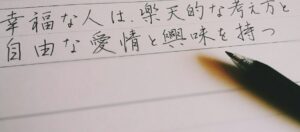 幸福な人は、楽天的な考え方と
自由な愛情と興味を持つ